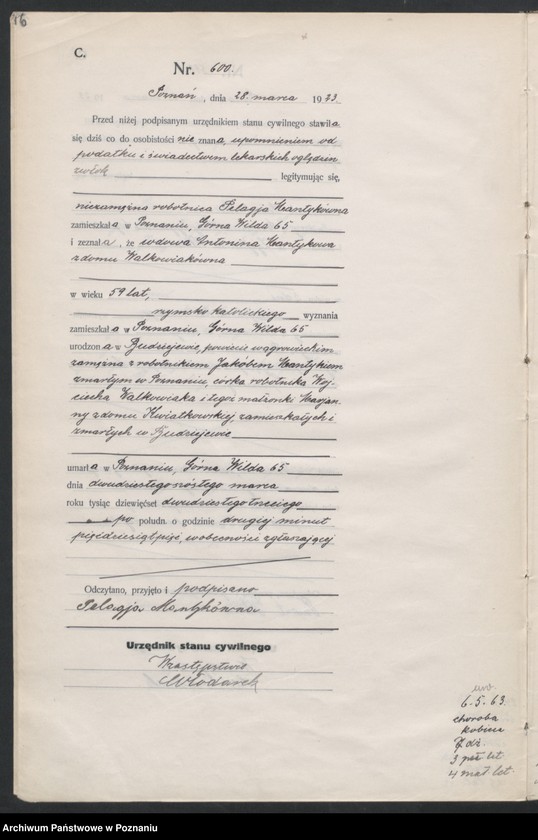 76
C.
Nr. 600.
Poznań, dnia 28. marca 1923.
Przed niżej podpisanym urzędnikiem stanu cywilnego stawiła
się dziś co do osobistości nie znana, upomnieniem od
podatku i świadectwem lekarskich oględzin
zwłok legitymując się,
niezamężna robotnica Pelagja Mantykówna
zamieszkała w Poznaniu, Górna Wilda 65
i zeznała, że wdowa Antonina Mantykowa
z domu Walkowiakówna
w wieku 59 lat,
rzymsko katolickiego wyznania
zamieszkała w Poznaniu, Górna Wilda 65
urodzona w Budziejewie, powiecie wągrowieckim
zamężna z robotnikiem Jakóbem Mantykiem
zmarłym w Poznaniu, córka robotnika Woj-
ciecha Walkowiaka i tegoż małżonki Marjan-
ny z domu Kwiatkowskiej, zamieszkałych i
zmarłych w Budziejewie
umarła w Poznaniu, Górna Wilda 65
dnia dwudziestego szóstego marca
roku tysiąc dziewięćset dwudziestego trzeciego
po połudn. o godzinie drugiej minut
pięćdziesiąt pięć, w obecności zgłaszającej
Odczytano, przyjęto i podpisano
Pelagja Mantykówna
Urzędnik stanu cywilnego
W zastępstwie
Włodarek
ur.
6.5.63.
choroba
kobiec
7 dz.
3 peł. let.
4 mał. let.
Archiwum Państwowe w Poznaniu